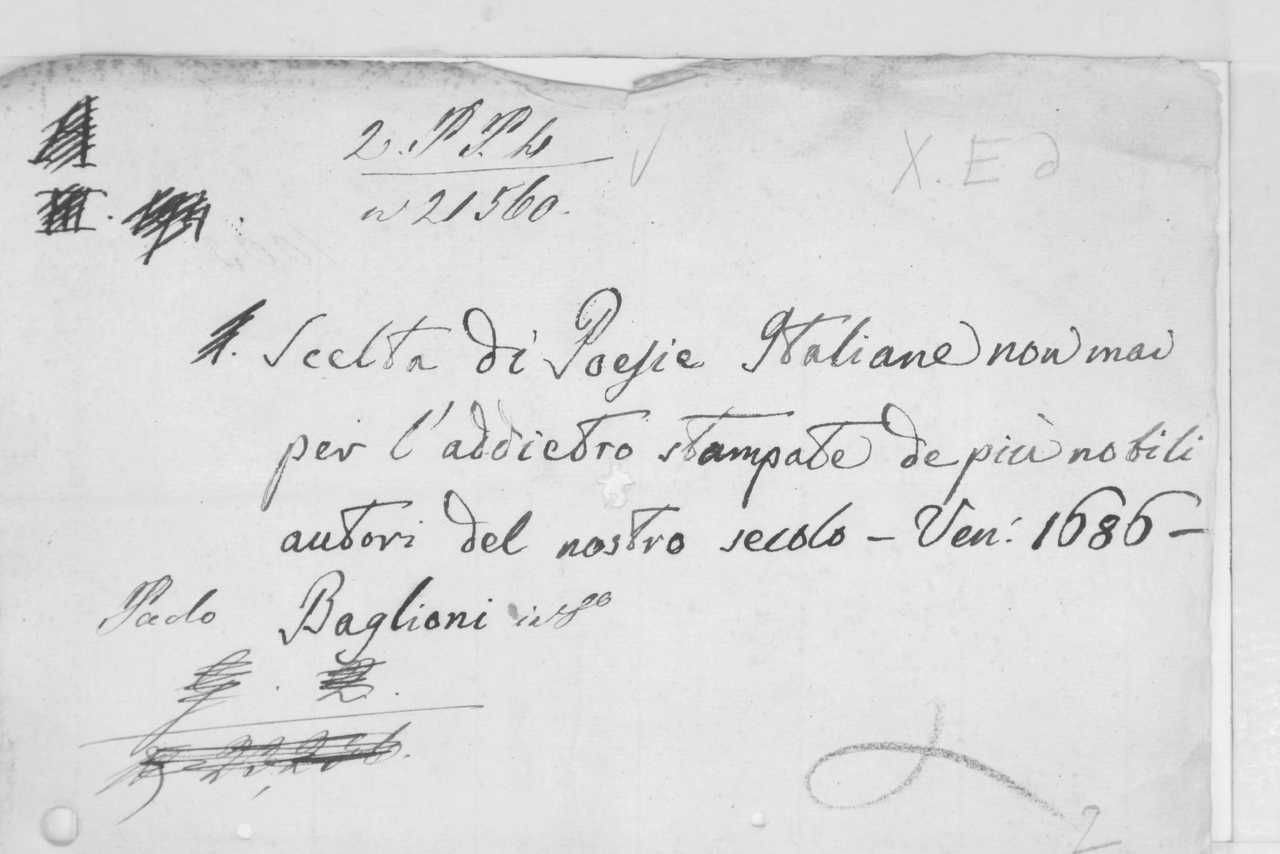 2. P. P. h
X. E d
n 21560.
Scelta di Poesie Italiane non mai
per l'addietro stampate de più nobili
autori del nostro secolo – Ven: 1686 –
Paolo Baglioni in 8°
2